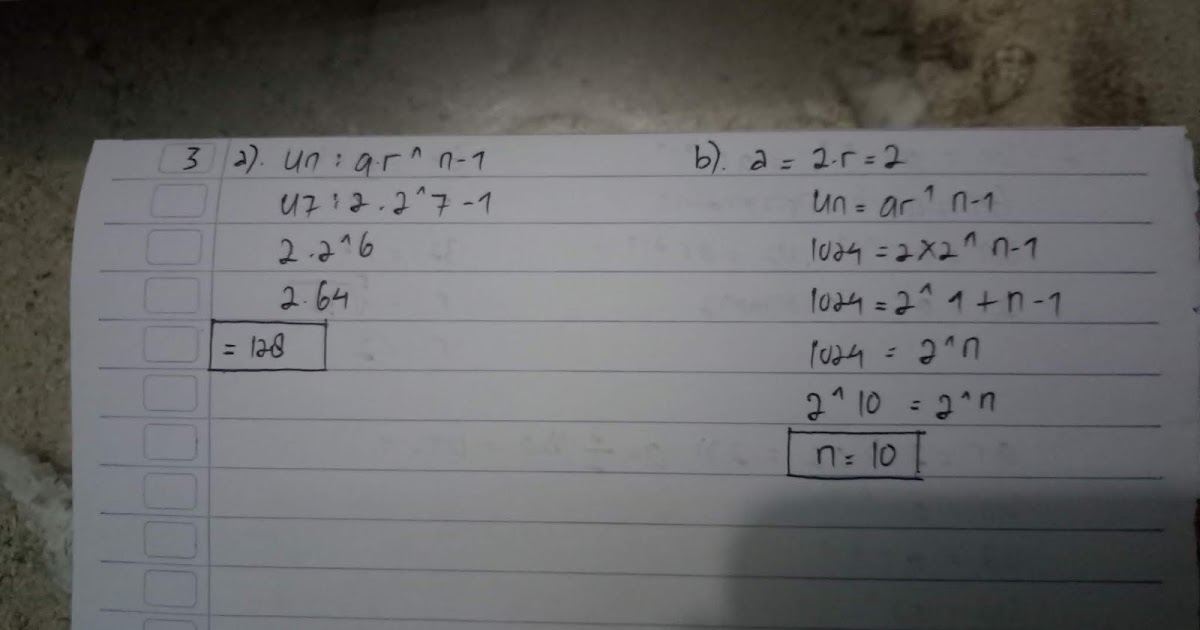 3 a). Un : a.r^ n-1
U7 : 2 . 2^7 -1
2 . 2^6
2 . 64
= 128
b). a = 2.r = 2
Un = ar^ n-1
1024 = 2×2^ n-1
1024 = 2^ 1 + n - 1
1024 = 2^n
2^ 10 = 2^n
n = 10